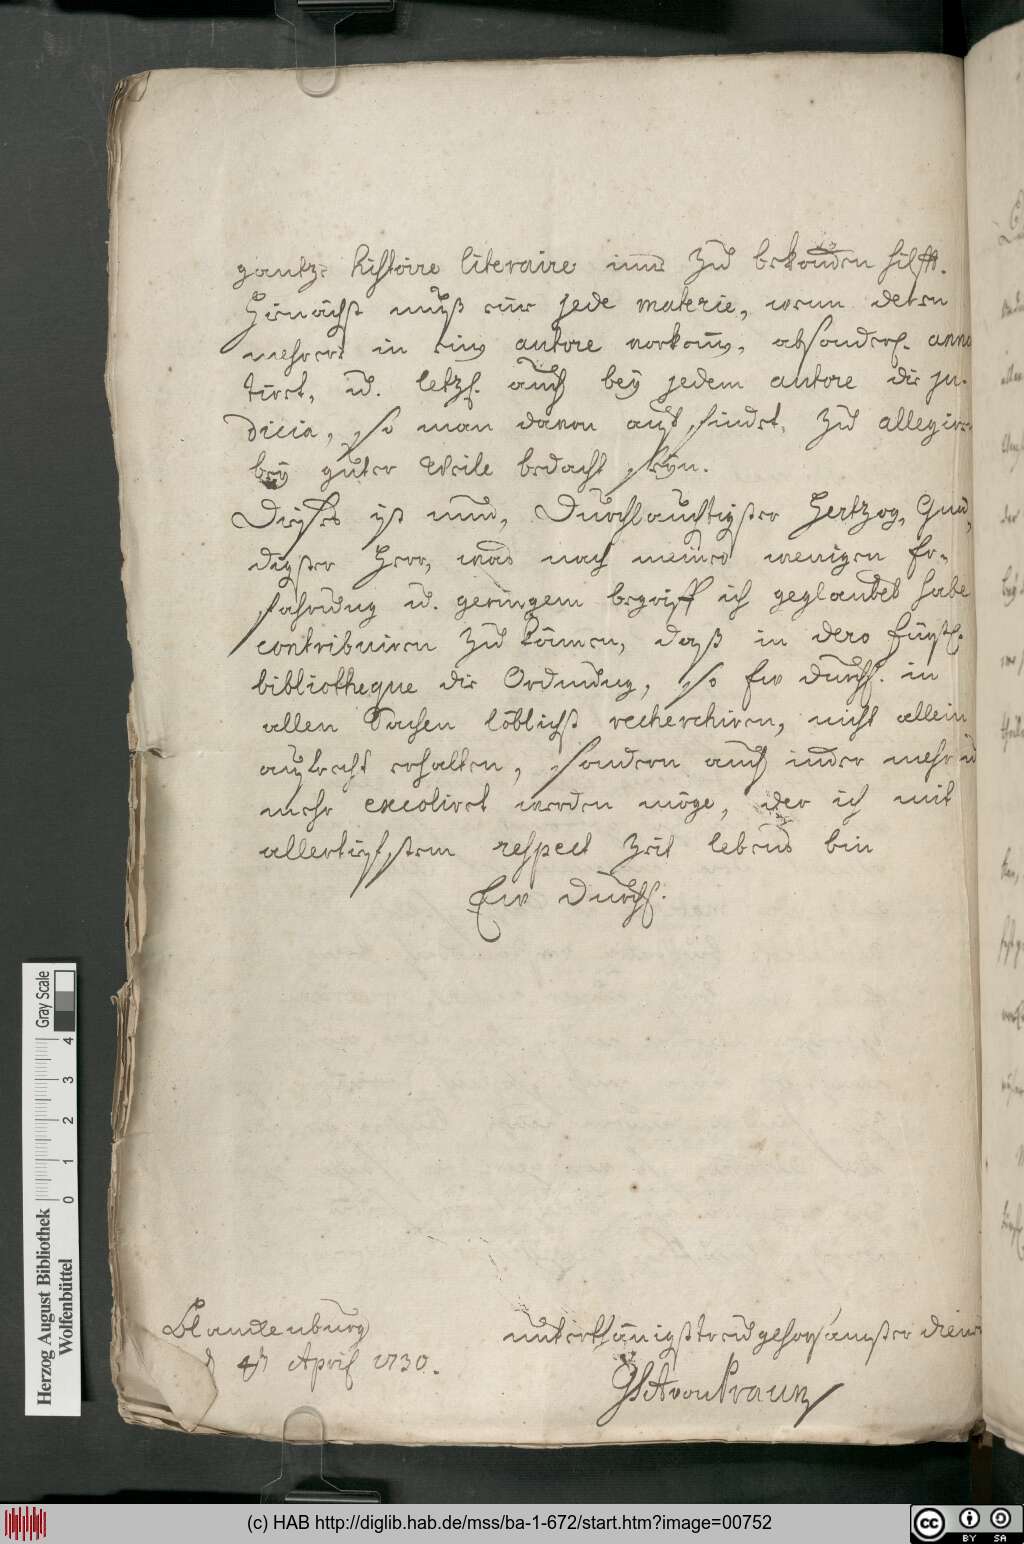 gantze histoire literaire inne zu bekommen hilfft.
Hirnächst muß eine jede materie, wenn deren
mehrere in einem autore vorkom̄t, absonderl. anno-
tiret, u. letzl. auch bey jedem autore die ju-
dicia, so man davon auf findet, zu allegiren
bey guter Weile bedacht seyn.
Dieses ist nun, Durchlauchtigster Hertzog, Gnä-
digster Herr, was nach meiner wenigen Er-
fahrung u. geringem begriff ich geglaubet habe
contribuiren zu können, daß in dero Fürstl.
bibliotheque die Ordnung, so Ew Durchl. in
allen Sachen löblichst recherchiren, nicht allein
aufrecht erhalten, sondern auch immer mehr u
mehr excoliret werden möge, der ich mit
allertiefstem respect Zeit lebens bin
Ew Durchl.
Blanckenburg
d 4t April 1730.
unterthänigst treugehorsamster diener
GSAvonPraun
Herzog August Bibliothek
Wolfenbüttel
0 1 2 3 4
Gray Scale
(c) HAB http://diglib.hab.de/mss/ba-1-672/start.htm?image=00752
cc BY SA